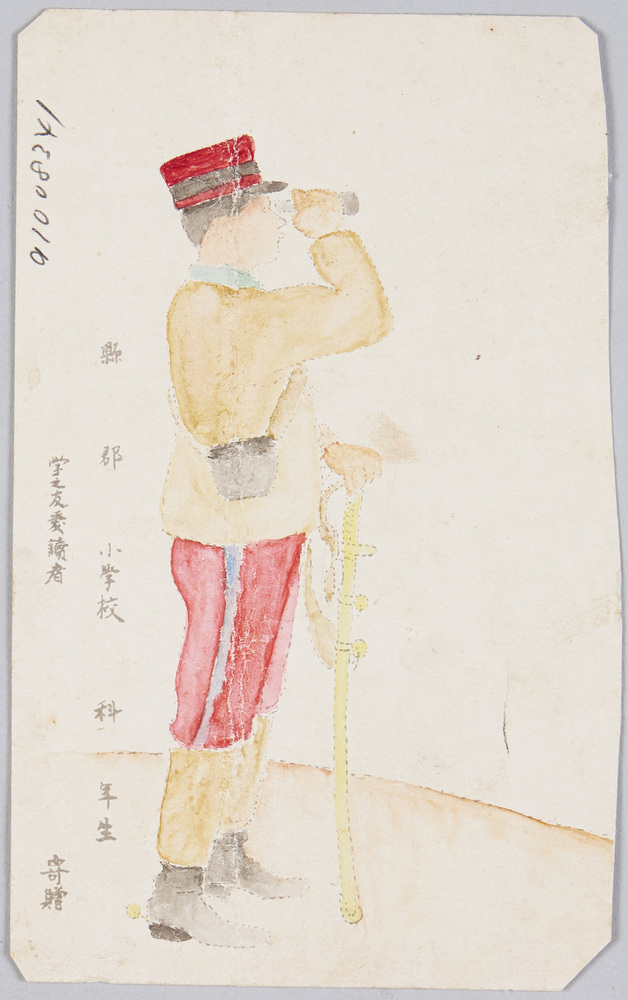 縣 郡 小學校 科 年生
学之友愛讀者 寄贈